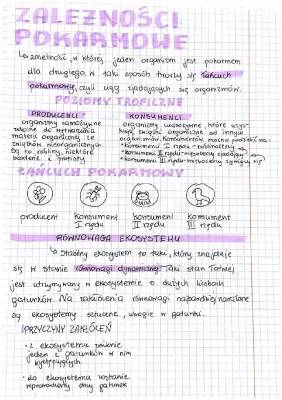 ZALEŻNOŚCI
POKARMOWE
↳ zależność, w której jeden organizm jest pokarmem
dla drugiego, w taki sposób tworzy się łańcuch
pokarmowy, czyli ciąg zjadających się organizmów.
POZIOMY TROFICZNE
PRODUCENCI
organizmy samożywne
zdolne do wytwarzania
materii organicznej ze
związków nieorganicznych.
Są to rośliny, niektóre
bakterie i protisty
KONSUMENCI
organizmy cudzożywne, które uzys-
kują związki organiczne od innych
organizmów. Konsumentów można podzielić na:
• konsumenci I rzędu - roślinożercy
• konsumenci II rzędu - mięsożercy zjadający
• konsumenci III rzędu - mięsożercy
ŁAŃCUCH POKARMOWY
producent
konsument
I rzędu
konsument
II rzędu
konsument
III rzędu
RÓWNOWAGA EKOSYSTEMU
↳ Stabilny ekosystem to taki, który znajduje
się w stanie równowagi dynamicznej. Taki stan łatwiej
jest utrzymywany w ekosystemie o dużych liczbach
gatunków. Na zakłócenia równowagi najbardziej narażone
są ekosystemy sztuczne, ubogie w gatunki.
PRZYCZYNY ZAKŁÓCEŃ
• z ekosystemu zniknie
jeden z gatunków w nim
występujących
• do ekosystemu zostanie
wprowadzony obcy gatunek